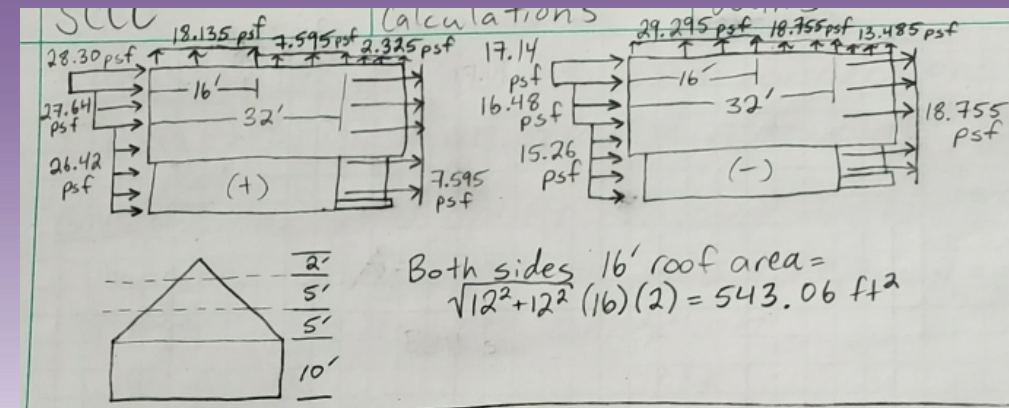 SCCC Calculations
18.135 psf 7.595 psf 2.325 psf
28.30 psf
16'
27.64 psf
32'
26.42 psf
(+)
7.595 psf
29.295 psf 18.755 psf 13.485 psf
17.14 psf
16'
16.48 psf
32'
18.755 psf
15.26 psf
(-)
2'
5'
5'
10'
Both sides 16' roof area =
√12²+12² (16)(2) = 543.06 ft²